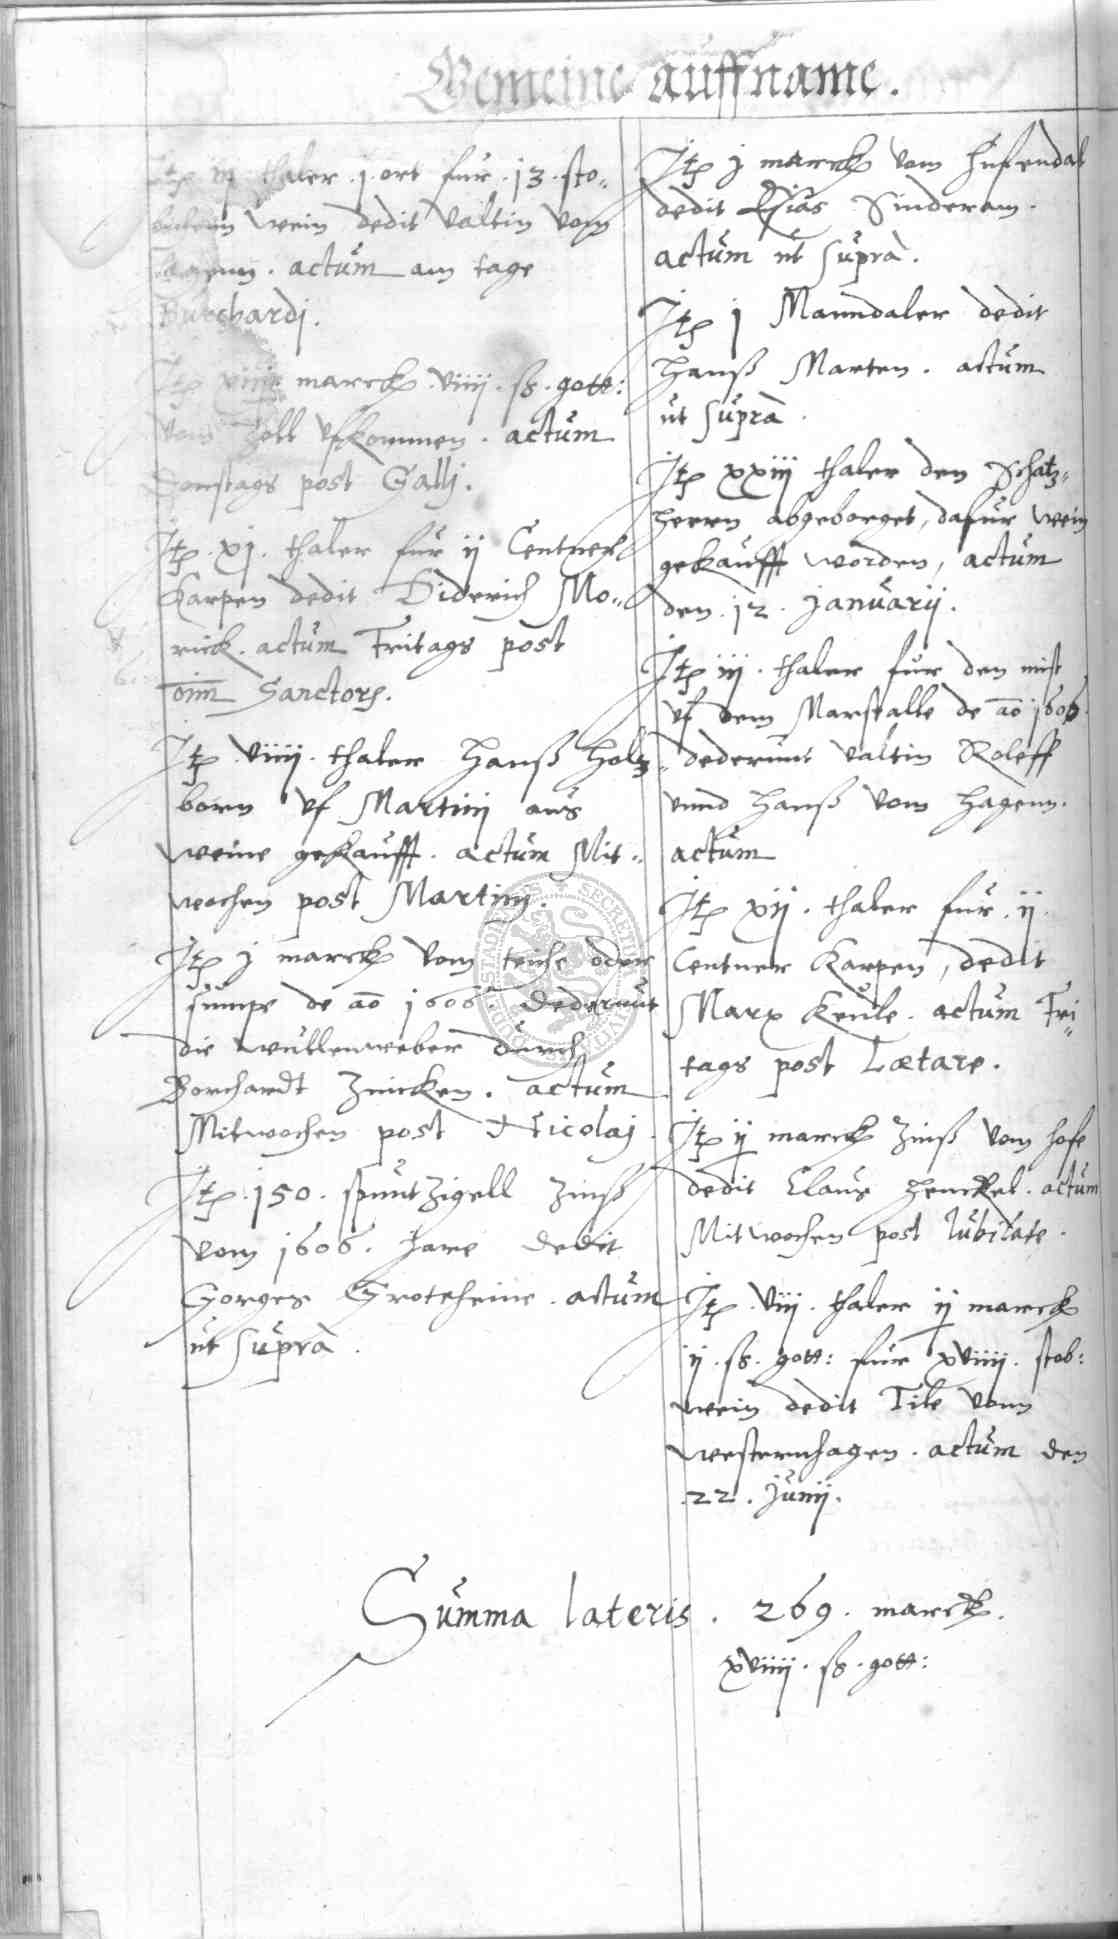 Gemeine auffname.
Itz iij thaler .j. ort fur .13. sto-
wein dedit Valtin vom
actum am tage
Burchardj.
Itz marck viiij ß gott:
vom Zoll ufkommen. actum
Donstags post Gallj.
Itz xj. thaler fur ij Centner
Karpen dedit Diderich Mo-
rick. actum Fritags post
oim Sanctorz.
Itz viiij. thaler Hanß Holtz-
born uf Martinj aus
weine gekaufft. actum Mit-
wochen post Martinj.
Itz j marck vom teiche oder
sumpe de ao 1606. dederunt
die wullenweber durch
Borchardt Zincken. actum
Mitwochen post Nicolaj.
Itz .150. spuntzigell Zinß
vom 1606. Jare dedit
Gorges Groteheine. actum
ut supra.
Itz j marck vom Hufendal
dedit Sinderam.
actum ut supra.
Itz j Manndaler dedit
Hanß Marten. actum
ut supra.
Itz xxiij thaler den Schatz-
herrn abgeborget, dafur wein
gekaufft worden, actum
den .12. Januarij.
Itz iij. thaler fur den mist
uf dem Marstalle de ao 1606.
dederunt Valtin Roleff
unnd Hanß vom Hagenn.
actum
Itz xij. thaler fur .ij.
Centner Karpen, dedit
Marx Keule. actum Fri-
tags post Lætare.
Itz ij marck Zinß vom hofe
dedit Claus Henckel. actum
Mitwochen post Jubilate.
Itz viij. thaler ij marck
ij. ß. gott: fur xviiij. stob:
wein dedit Tile vonn
Westernhagen. actum den
22. Junij.
Summa lateris. 269. marck.
xviiij. ß. gott: